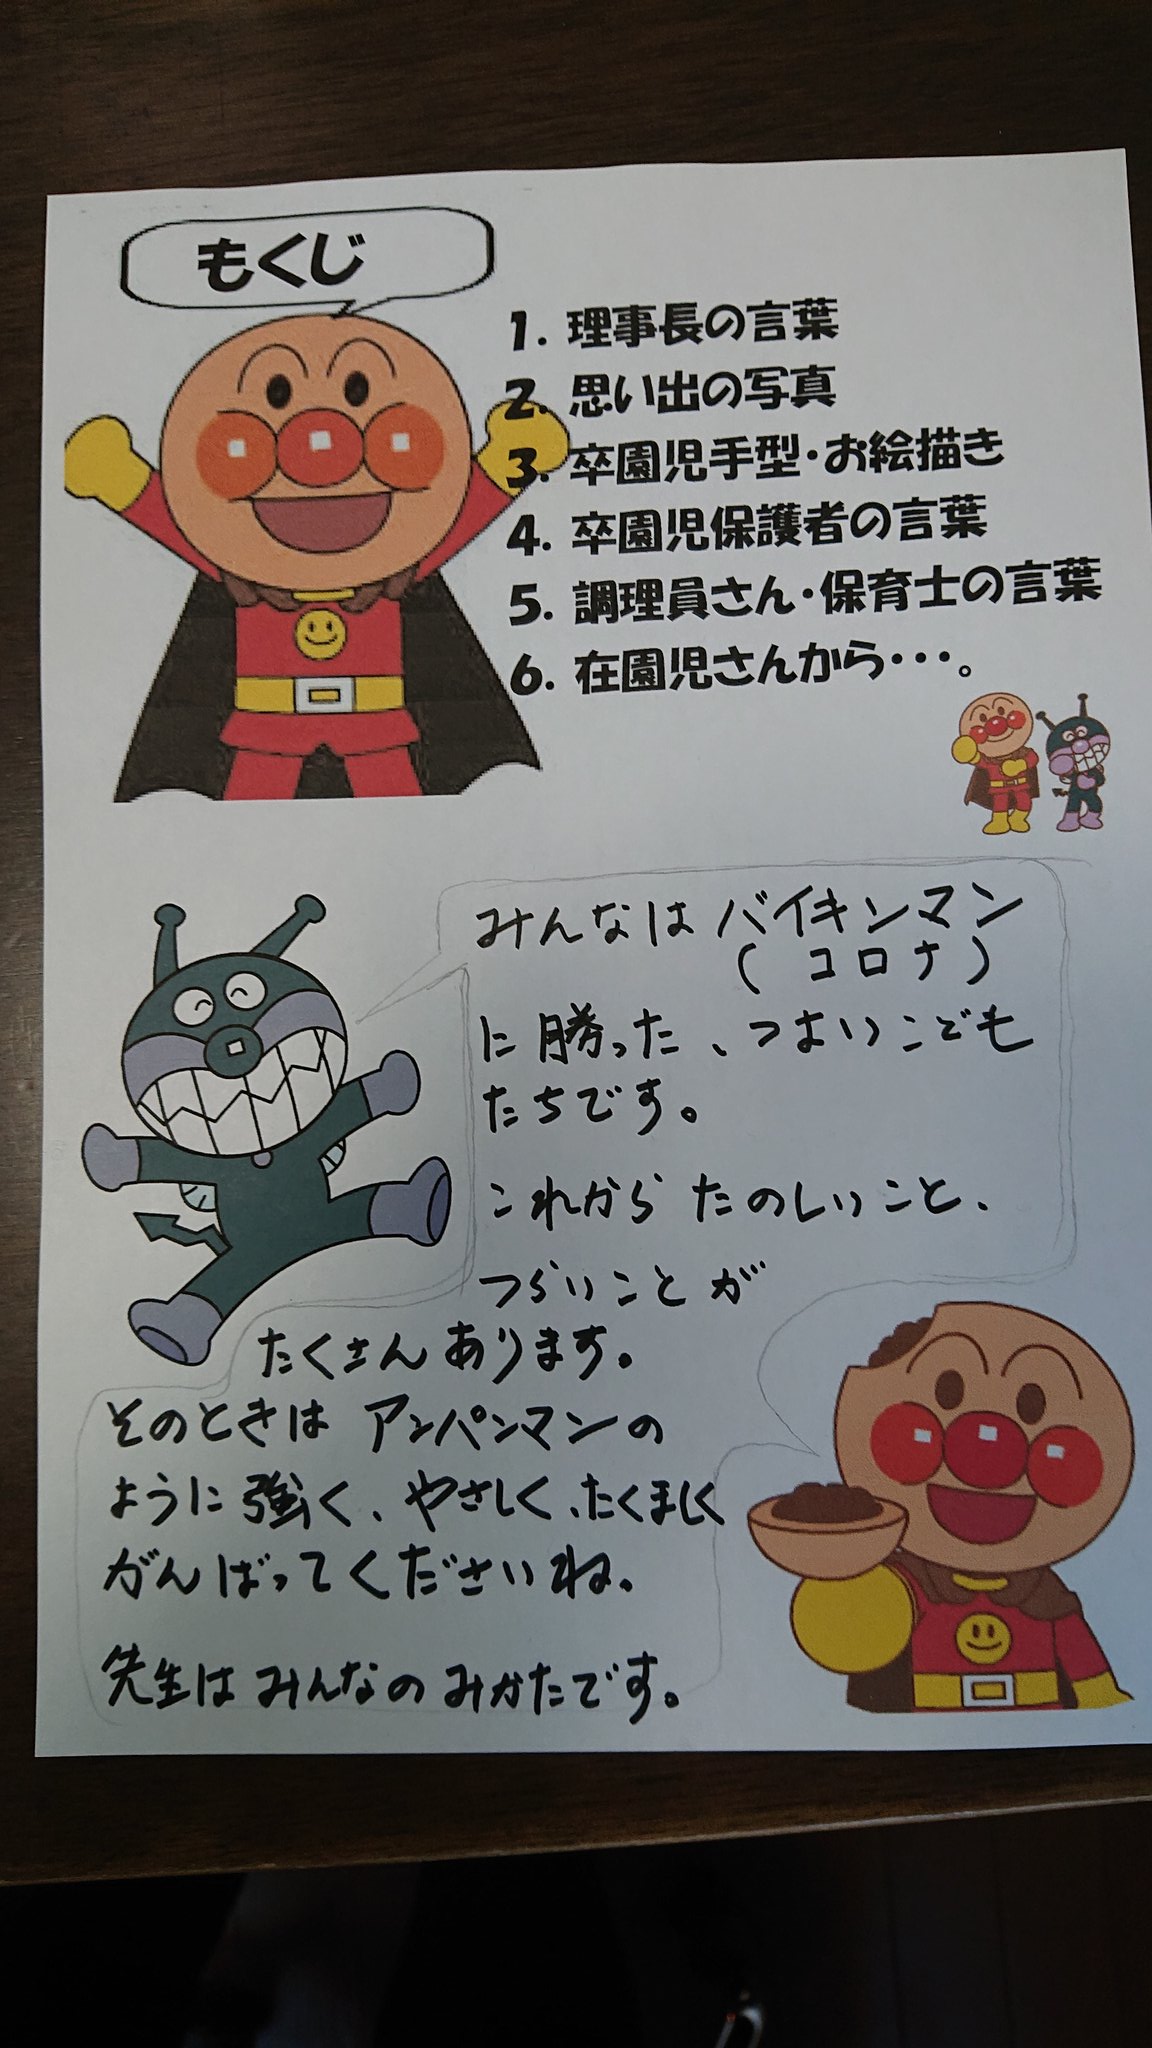 もくじ
1. 理事長の言葉
2. 思い出の写真
3. 卒園児手型・お絵描き
4. 卒園児保護者の言葉
5. 調理員さん・保育士の言葉
6. 在園児さんから・・・。
みんなは バイキンマン
(コロナ)
に勝った、つよいこども
たちです。
これから たのしいこと、
つらいことが
たくさんあります。
そのときは アンパンマンの
ように強く、やさしく、たくましく
がんばってくださいね。
先生は みんなの みかたです。